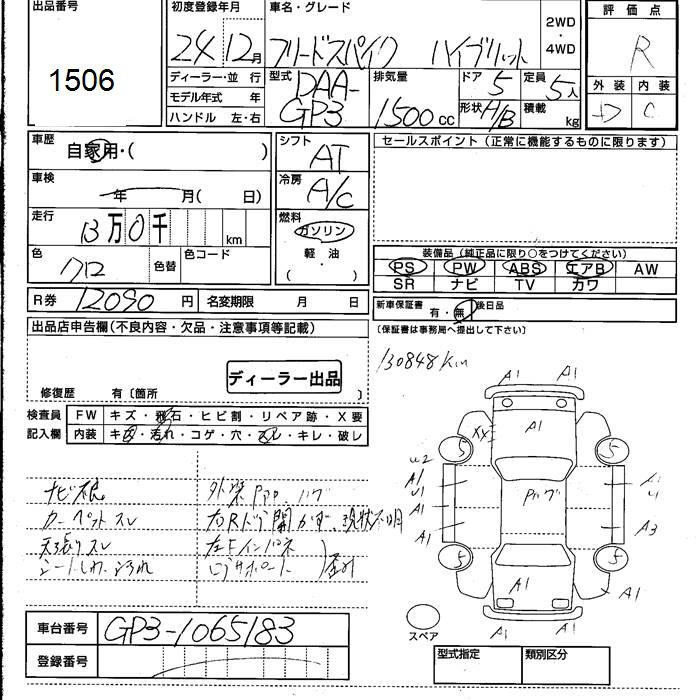 出品番号
1506
初度登録年月
24 12月
車名・グレード
フリードスパイク ハイブリット
2WD
・
4WD
評価点
R
外装 内装
D C
ディーラー・並 行
モデル年式 年
ハンドル 左・右
型式
DAA-
GP3
排気量
1500cc
ドア 5
定員 5人
形状 H/B
積載 kg
車歴
自家用・( )
車検
年 月( 日)
走行
13万0千 km
色
クロ
色替
色コード
シフト
AT
冷房
A/C
燃料
ガソリン
軽・油
( ・ )
セールスポイント (正常に機能するものに限ります)
装備品 (純正品に限り○をつけてください)
PS PW ABS エアB AW
SR ナビ TV カワ
R券 12090円
名変期限 月 日
新車保証書 有・無
後日品
(保証書は事務局へ提出して下さい)
出品店申告欄(不良内容・欠品・注意事項等記載)
ディーラー出品
修復歴 有〔箇所 〕
130848km
検査員
記入欄
FW キズ・飛石・ヒビ割・リペア跡・X要
内装 キズ・汚れ・コゲ・穴・スレ・キレ・破レ
ナビ不良
カーペットスレ
天張りスレ
右Rドア開かず、現状不明
左Fインパネ
A1 A1
A1
XX
5 5
U2
A1
U1
A1
A1
A1
A3
5 5
A1
A1
A1 A1
スペア
車台番号 GP3-1065183
登録番号
型式指定 類別区分